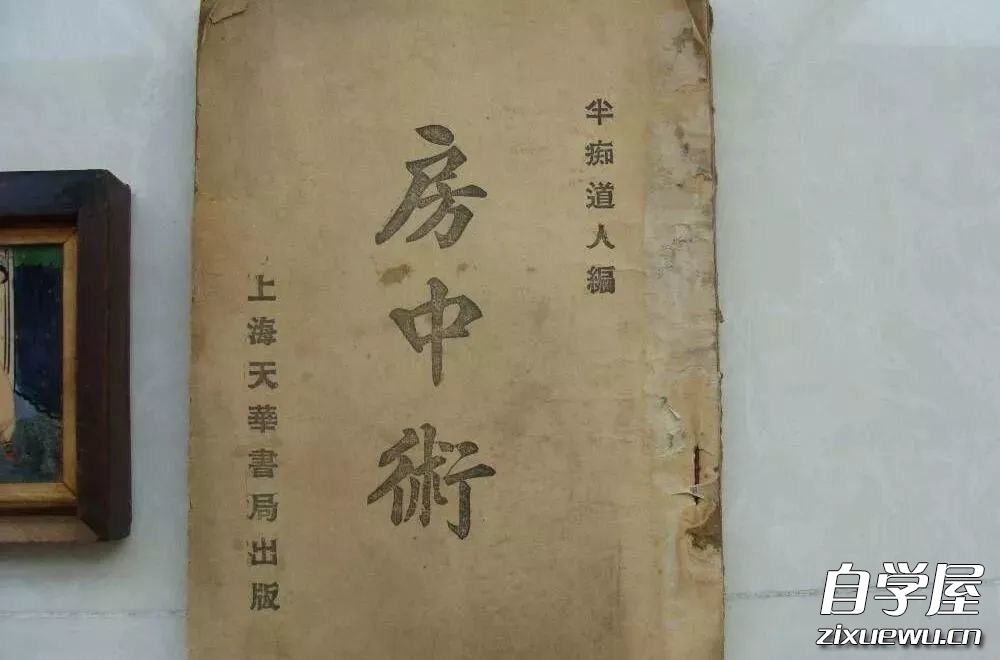 半痴道人編
房中術
上海天華書局出版
自学屋
zixuewu.cn